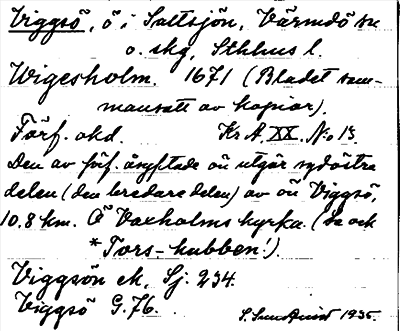 Viggsö, ö i Saltsjön, Värmdö sn
o. skg, Sthlms l.
Wigesholm. 1671 (Bladet sam-
mansatt av kopior).
Förf. okd. Kr A. XX. No 13.
Den av förf. åsyftade ön utgör sydöstra
delen (den bredare delen) av ön Viggsö,
10,8 km. Ö Vaxholms kyrka. (Se ock
*Tors-kubben!).
Viggsön ek, Sj. 234.
Viggsö G. 76.
S. Sundquist 1935.